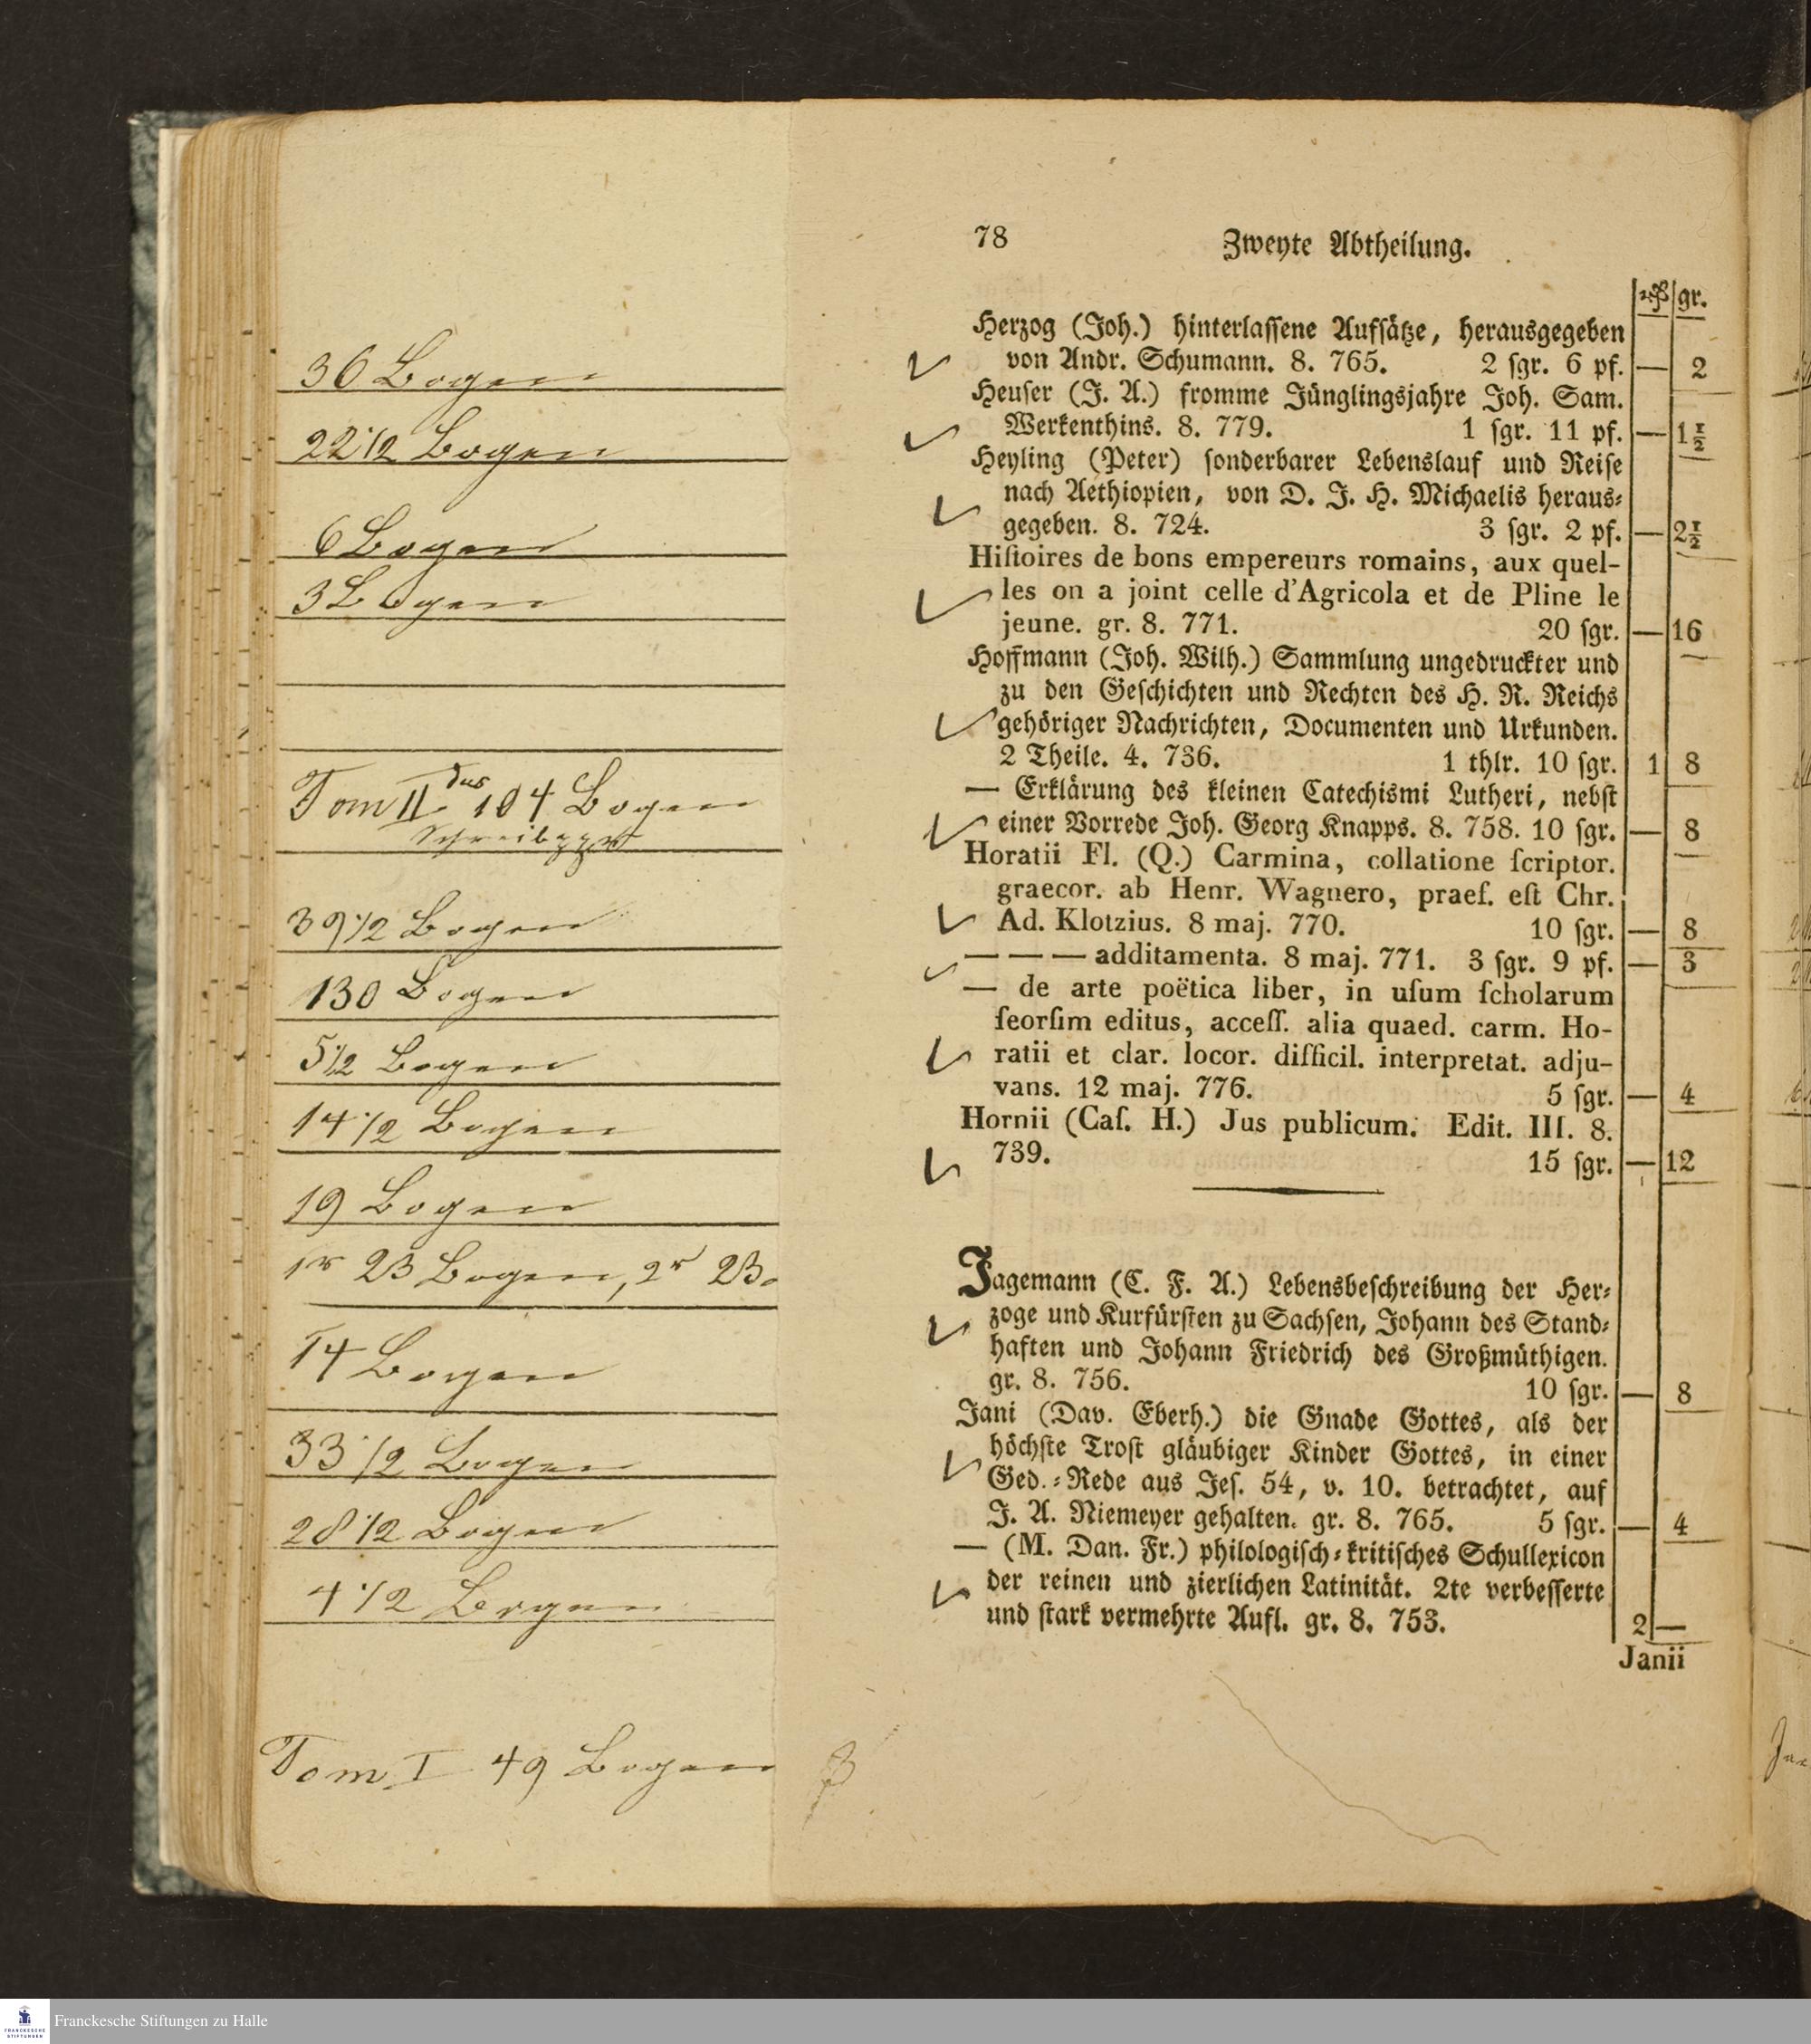 36 Bogen
22 1/2 Bogen
6 Bogen
3 Bogen
Tom II 104 Bogen
39 1/2 Bogen
130 Bogen
5 1/2 Bogen
14 1/2 Bogen
19 Bogen
1r 23 Bogen, 2r 23.
14 Bogen
33 1/2 Bogen
28 1/2 Bogen
4 1/2 Bogen
Tom I 49 Bogen
78 Zweyte Abtheilung.
gr.
Herzog (Joh.) hinterlaſſene Aufſätze, herausgegeben
von Andr. Schumann. 8. 765. 2 ſgr. 6 pf. — 2
Heuſer (J. A.) fromme Jünglingsjahre Joh. Sam.
Werkenthins. 8. 779. 1 ſgr. 11 pf. — 1½
Heyling (Peter) ſonderbarer Lebenslauf und Reiſe
nach Aethiopien, von D. J. H. Michaelis heraus-
gegeben. 8. 724. 3 ſgr. 2 pf. — 2½
Hiſtoires de bons empereurs romains, aux quel-
les on a joint celle d'Agricola et de Pline le
jeune. gr. 8. 771. 20 ſgr. — 16
Hoffmann (Joh. Wilh.) Sammlung ungedruckter und
zu den Geſchichten und Rechten des H. R. Reichs
gehöriger Nachrichten, Documenten und Urkunden.
2 Theile. 4. 736. 1 thlr. 10 ſgr. 1 8
— Erklärung des kleinen Catechismi Lutheri, nebſt
einer Vorrede Joh. Georg Knapps. 8. 758. 10 ſgr. — 8
Horatii Fl. (Q.) Carmina, collatione ſcriptor.
graecor. ab Henr. Wagnero, praeſ. eſt Chr.
Ad. Klotzius. 8 maj. 770. 10 ſgr. — 8
— — — additamenta. 8 maj. 771. 3 ſgr. 9 pf. — 3
— de arte poëtica liber, in uſum ſcholarum
ſeorſim editus, acceſſ. alia quaed. carm. Ho-
ratii et clar. locor. difficil. interpretat. adju-
vans. 12 maj. 776. 5 ſgr. — 4
Hornii (Caſ. H.) Jus publicum. Edit. III. 8.
739. 15 ſgr. — 12
Jagemann (C. F. A.) Lebensbeſchreibung der Her-
zoge und Kurfürſten zu Sachſen, Johann des Stand-
haften und Johann Friedrich des Großmüthigen.
gr. 8. 756. 10 ſgr. — 8
Jani (Dav. Eberh.) die Gnade Gottes, als der
höchſte Troſt gläubiger Kinder Gottes, in einer
Ged.-Rede aus Jeſ. 54, v. 10. betrachtet, auf
J. A. Niemeyer gehalten. gr. 8. 765. 5 ſgr. — 4
— (M. Dan. Fr.) philologiſch-kritiſches Schullexicon
der reinen und zierlichen Latinität. 2te verbeſſerte
und ſtark vermehrte Aufl. gr. 8. 753. 2 —
Janii
FRANCKESCHE
STIFTUNGEN
Franckesche Stiftungen zu Halle